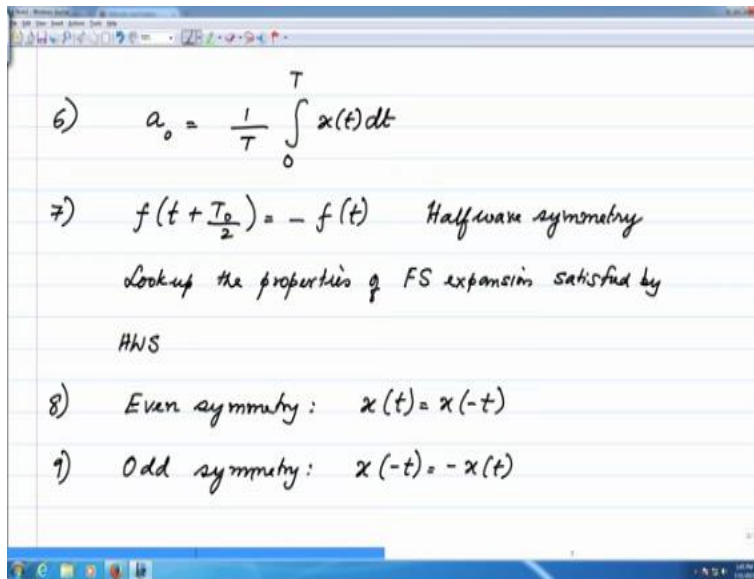 6) a₀ = 1/T ∫₀ᵀ x(t) dt
7) f(t + T₀/2) = - f(t) Half wave symmetry
Look up the properties of FS expansion satisfied by
HWS
8) Even symmetry : x(t) = x(-t)
9) Odd symmetry : x(-t) = - x(t)